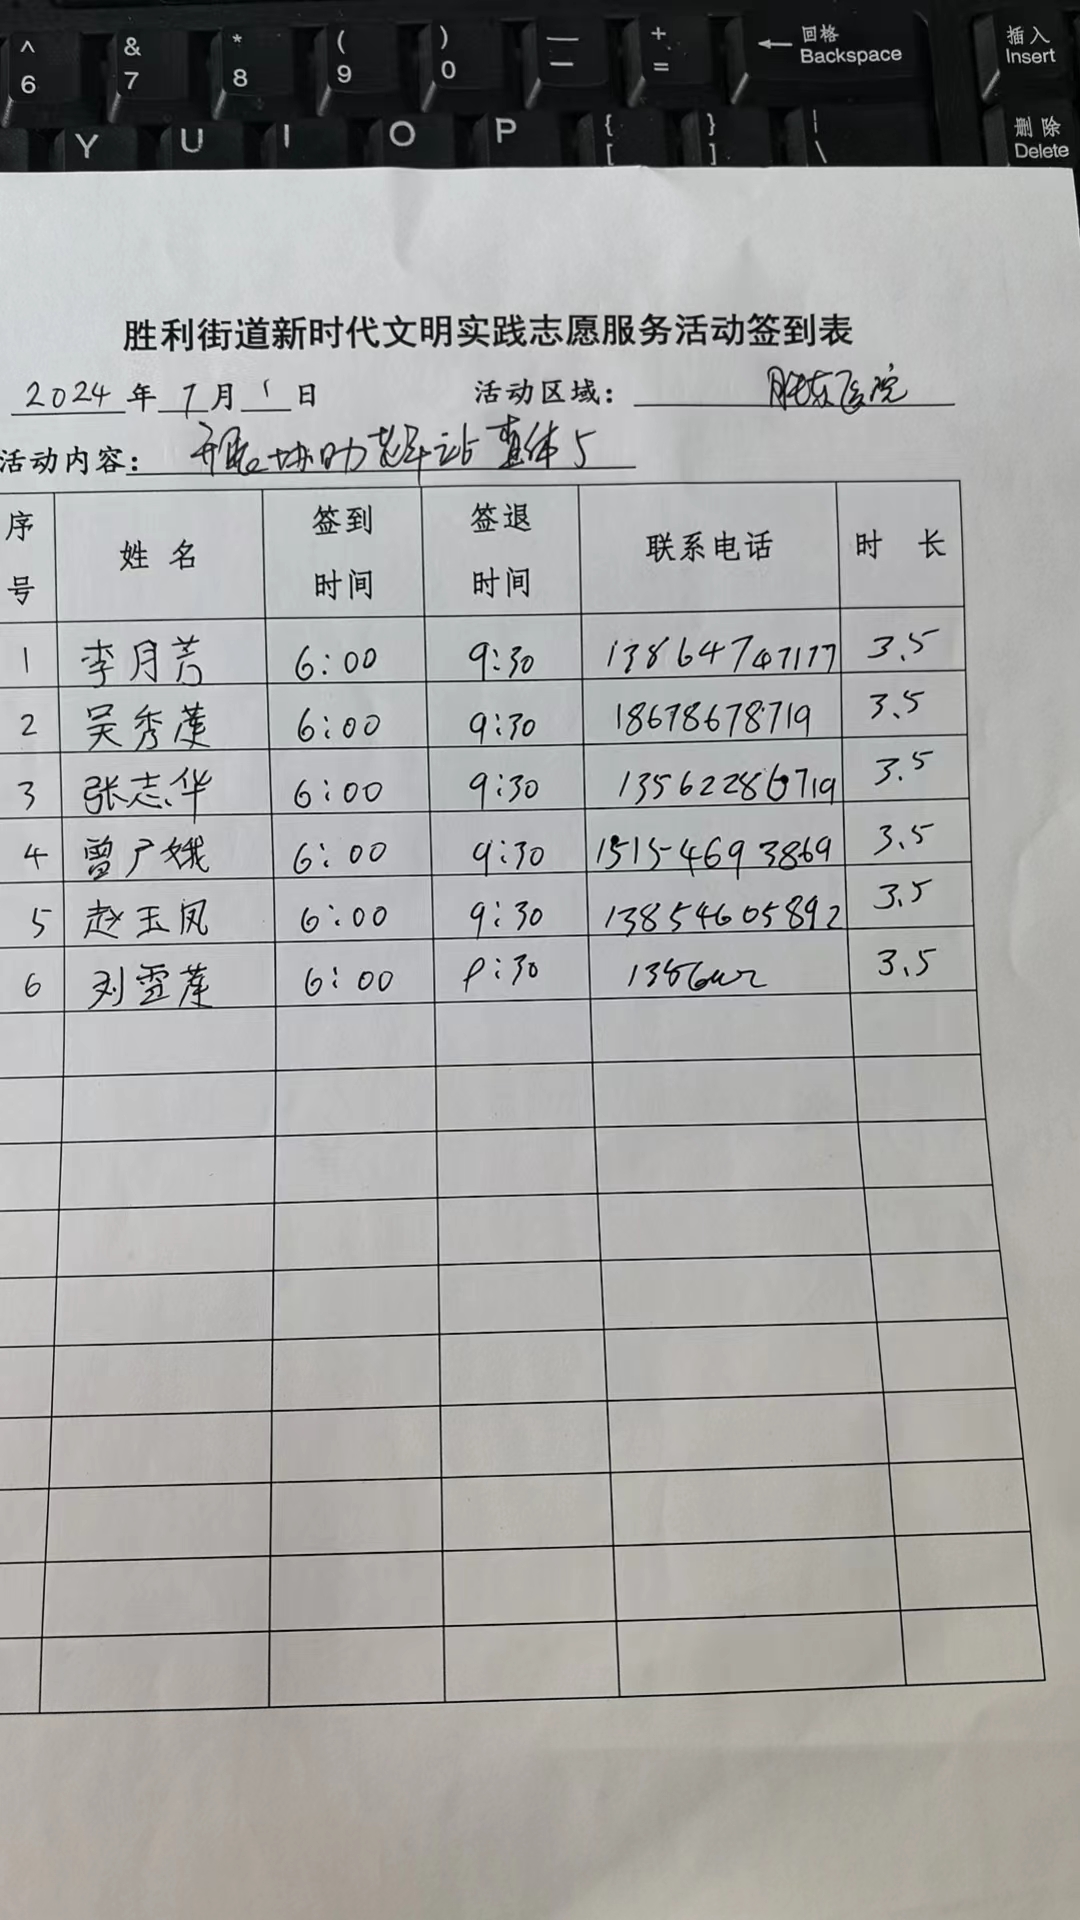 ^ & * ( ) — + ← 回格 插入
6 7 8 9 0 — = Backspace Insert
Y U I O P { } | 删除
[ ] \ Delete
胜利街道新时代文明实践志愿服务活动签到表
2024年7月1日 活动区域: 胜东医院
活动内容: 开展协助老年站查体
序号 姓名 签到时间 签退时间 联系电话 时长
1 李月芳 6:00 9:30 3.5
2 吴秀莲 6:00 9:30 18678678719 3.5
3 张志华 6:00 9:30 13562286719 3.5
4 曾广娥 6:00 9:30 15154693869 3.5
5 赵玉凤 6:00 9:30 13854605892 3.5
6 刘雪莲 6:00 9:30 3.5